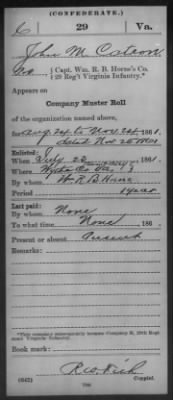 (CONFEDERATE.)
C 29 Va.
John M. Catron
{ Capt. Wm. R. B. Horne's Co.
{ 29 Reg't Virginia Infantry.*
Appears on
Company Muster Roll
of the organization named above,
for Aug 24 to Nov 24, 1861.
dated Nov 25 1861
Enlisted:
When July 23, 1861.
Where Wythe Co. Va.
By whom Wm R B Horne
Period 1 year
Last paid:
By whom None
To what time None, 186 .
Present or absent Present
Remarks:
*This company subsequently became Company
Reg't Virginia Infantry.
Book mark:
(642)
Copyist.